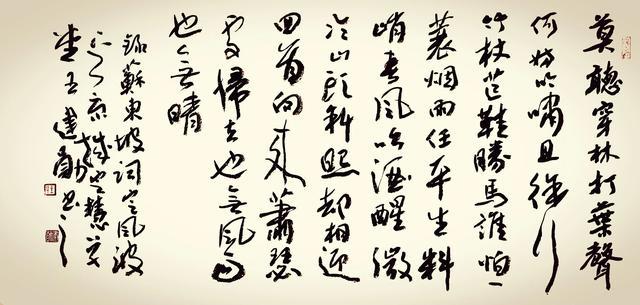 莫聽穿林打葉聲
何妨吟嘯且徐行
竹杖芒鞋勝馬誰怕一
蓑烟雨任平生料
峭春風吹酒醒微
冷山頭斜照却相迎
回首向來蕭瑟
處歸去也無風雨
也無晴
錄蘇東坡詞定風波
京城定慧草
堂王建